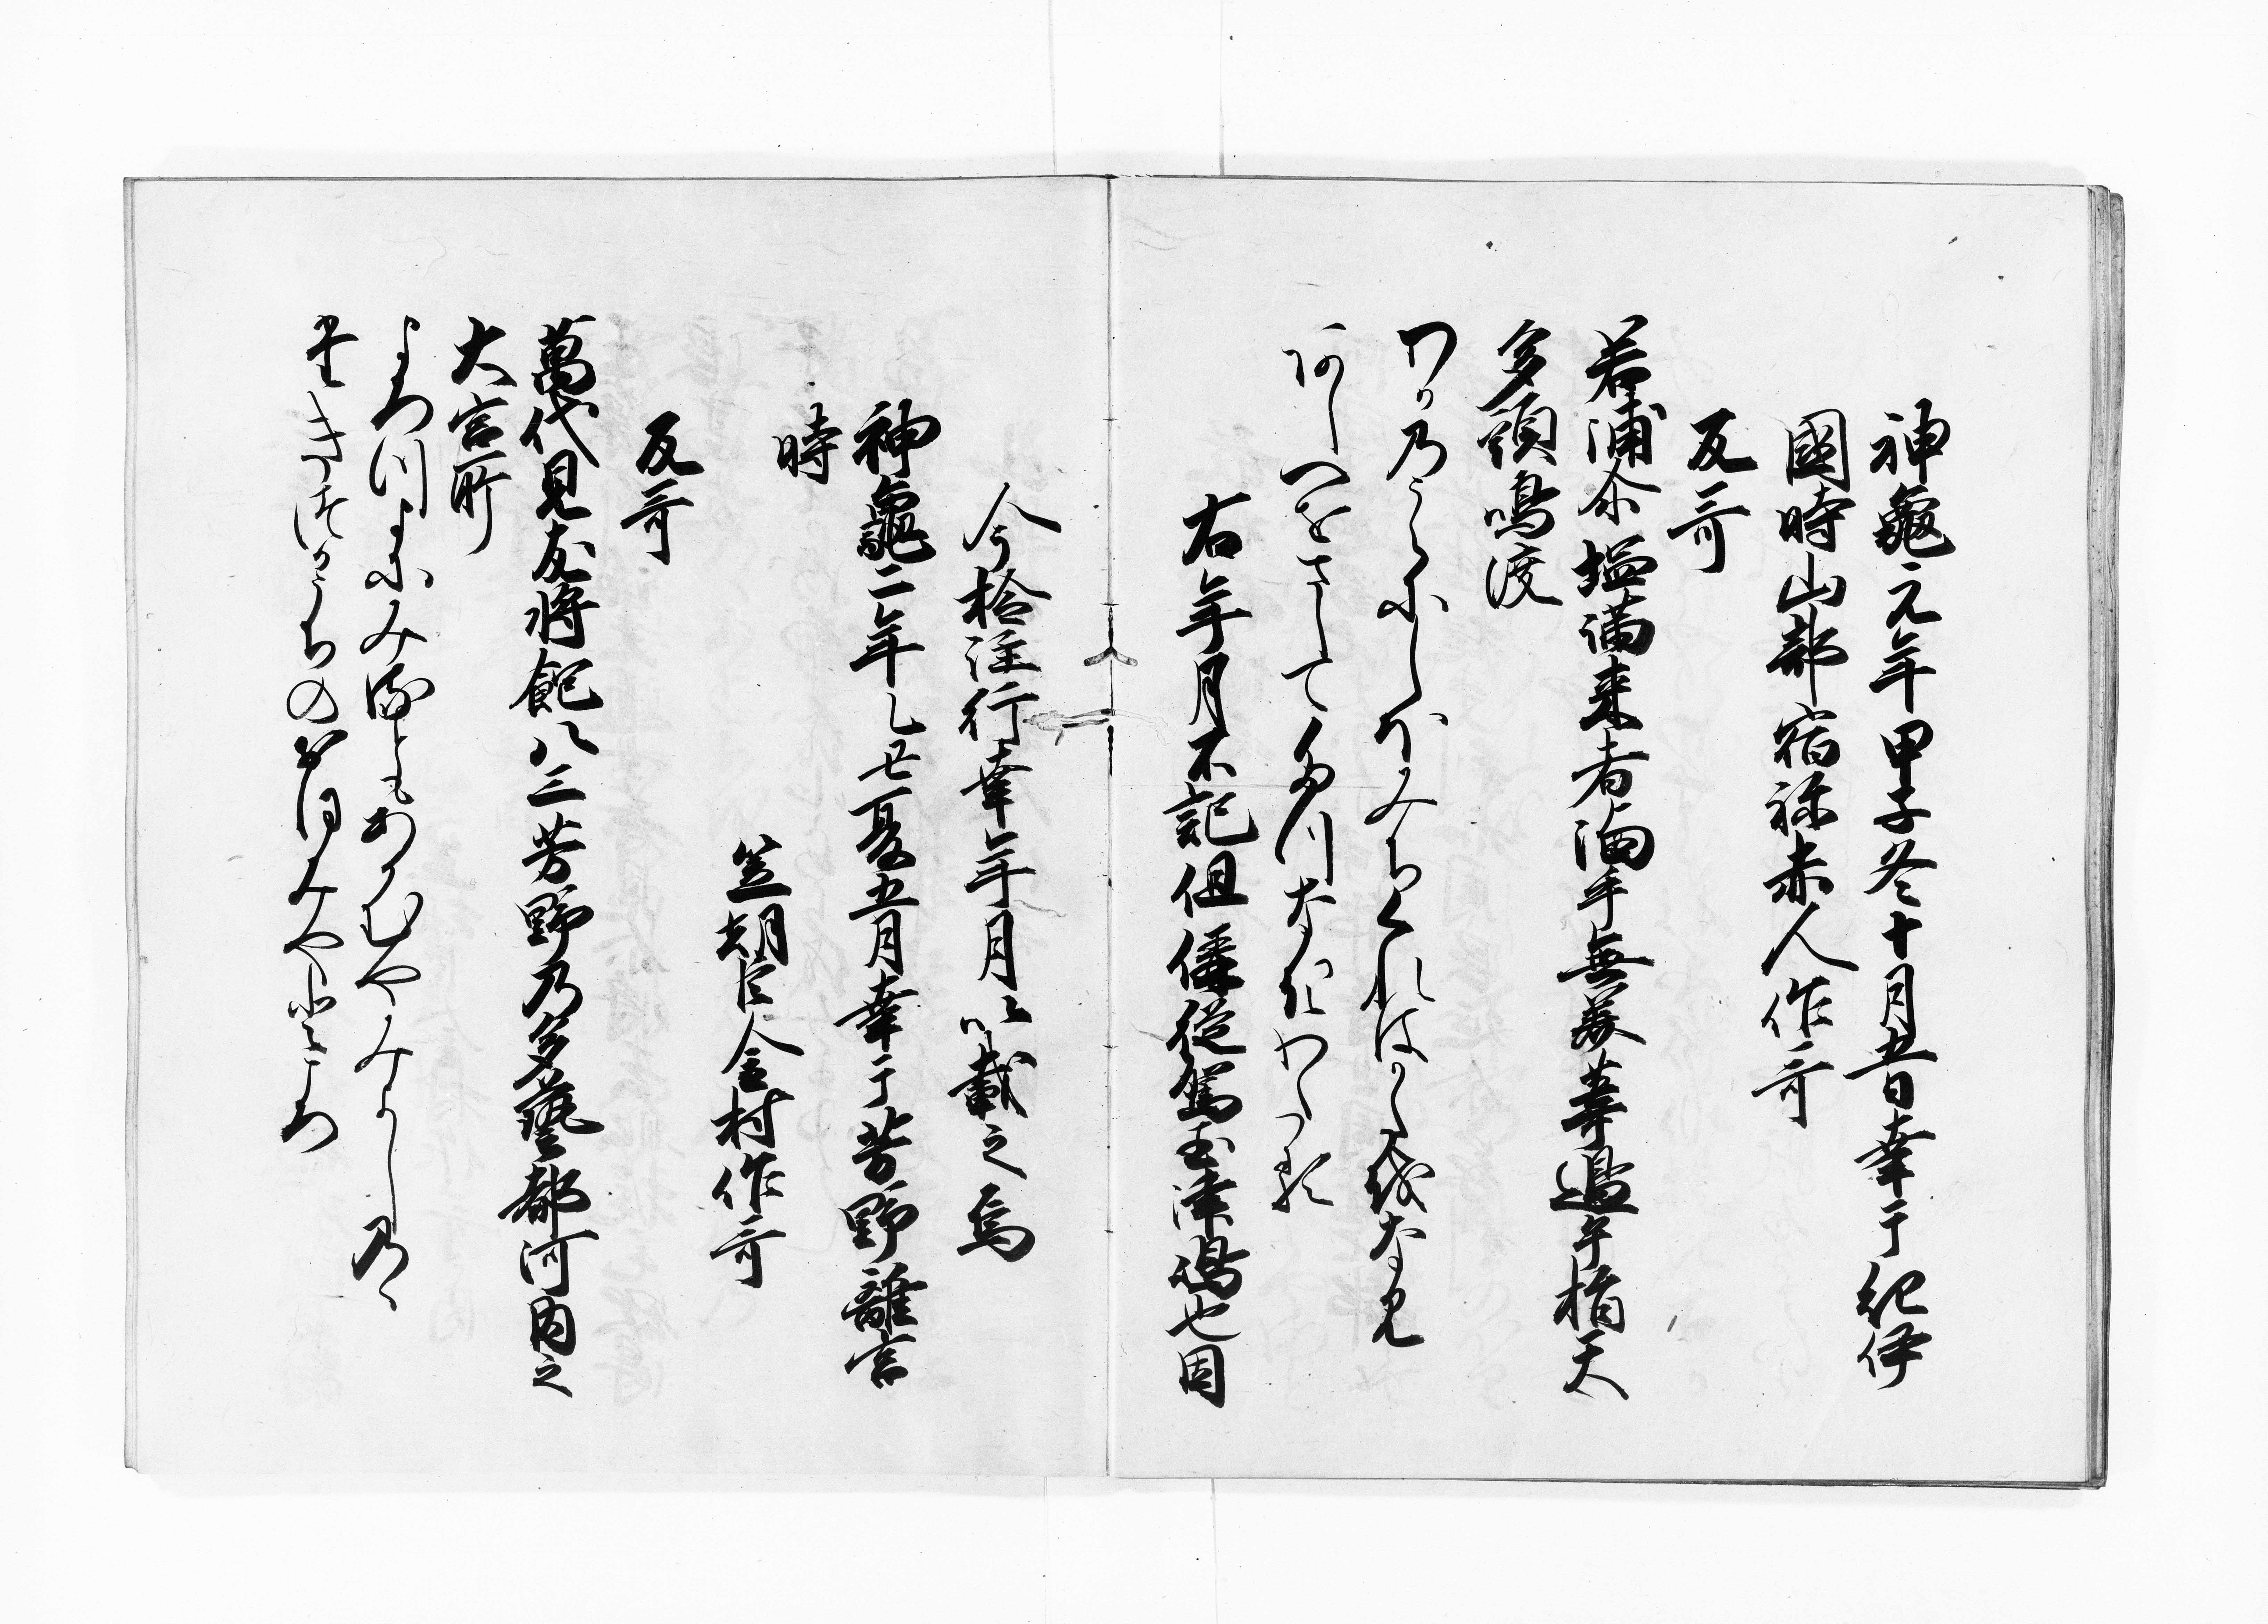 神龜元年甲子冬十月五日幸于紀伊
國時山部宿祢赤人作哥
反哥
若浦尓塩満来者滷乎無美葦邊乎指天
多頭鳴渡
わかのうらにしほみちくれはかたをなみ
あしへをさしてたつなきわたる
右年月不記但偁従駕玉津嶋也因
今検注行幸年月以載之焉
神龜二年乙丑夏五月幸于芳野離宮
時
笠朝臣金村作哥
反哥
萬代見友将飽八三芳野乃多藝都河内之
大宮所
よろつよにみるともあかむやみよしのゝ
たきつかうちのおほみやところ